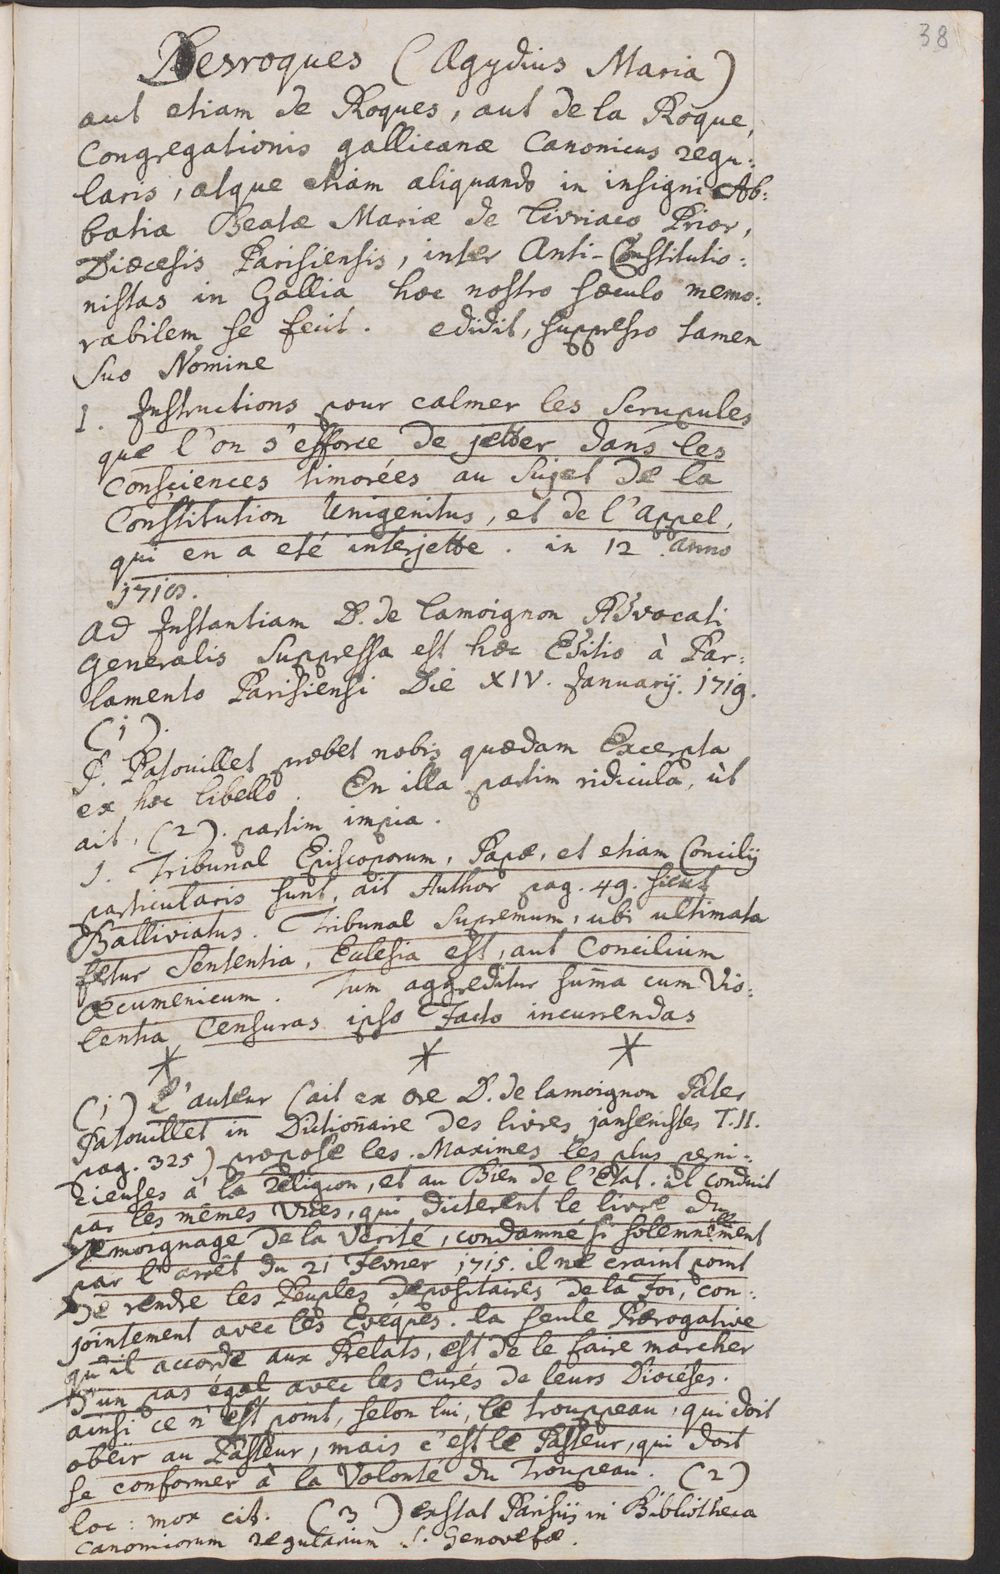 38
Desroques (Ægydius Maria)
aut etiam de Roques, aut de la Roque,
Congregationis gallicanæ Canonicus regu:
laris, atque etiam aliquando in insigni Ab:
batia Beatæ Mariæ de Livriaco Prior,
Diœcesis Parisiensis, inter Anti-Constitutio:
nistas in Gallia hoc nostro sæculo memo:
rabilem se fecit. edidit, suppresso tamen
suo Nomine
I. Instructions pour calmer les Scrupules
que l'on s'efforce de jetter dans les
Consciences timorées au Sujet de la
Constitution Unigenitus, et de l'appel,
qui en a eté interjette. in 12. anno
1718.
ad Instantiam D. de Lamoignon Advocati
Generalis Suppressa est hæc Editio à Par:
lamento Parisiensi Die XIV. Januarij. 1719.
(1).
P. Patouillet præbet nobis quædam Excerpta
ex hoc libello. En illa partim ridicula, ùt
ait, (2). partim impia.
1. Tribunal Episcoporum, Papæ, et etiam Concilij
particularis sunt, ait Author pag. 49. sicut
Balliviatus. Tribunal Supremum, ubi ultimata
fertur Sententia, Ecclesia est, aut Concilium
Œcumenicum. Tum aggreditur sum̄a cum Vio:
lentia Censuras ipso Facto incurrendas
* * *
(1) L'auteur (ait ex ore D. de lamoignon Pater
Patouillet in Dictioñaire des livres jansenistes T. II.
pag. 325) propose les Maximes les plus perni:
cieuses à la religion, et au Bien de l'Etat. il conduit
par les mêmes Vües, qui dicterent le livre du
Temoignage de la Verité, condamné si solemnellement
par l'arrêt du 21 Fevrier 1715. il ne craint point
de rendre les Peuples depositaires de la Foi, con:
jointement avec les Evéques. la seule Prærogative
qu'il accorde aux Prelats, est de le faire marcher
d'un pas égal avec les Curés de leurs Diocéses.
ainsi ce n'est point, selon lui, le trouppeau, qui doit
obeïr au Pasteur, mais c'est le Pasteur, qui doit
se conformer à la Volonté du Troupeau. (2)
loc: mox cit. (3) exstat Parisijs in Bibliotheca
canonicorum regularium S. Genovefæ.